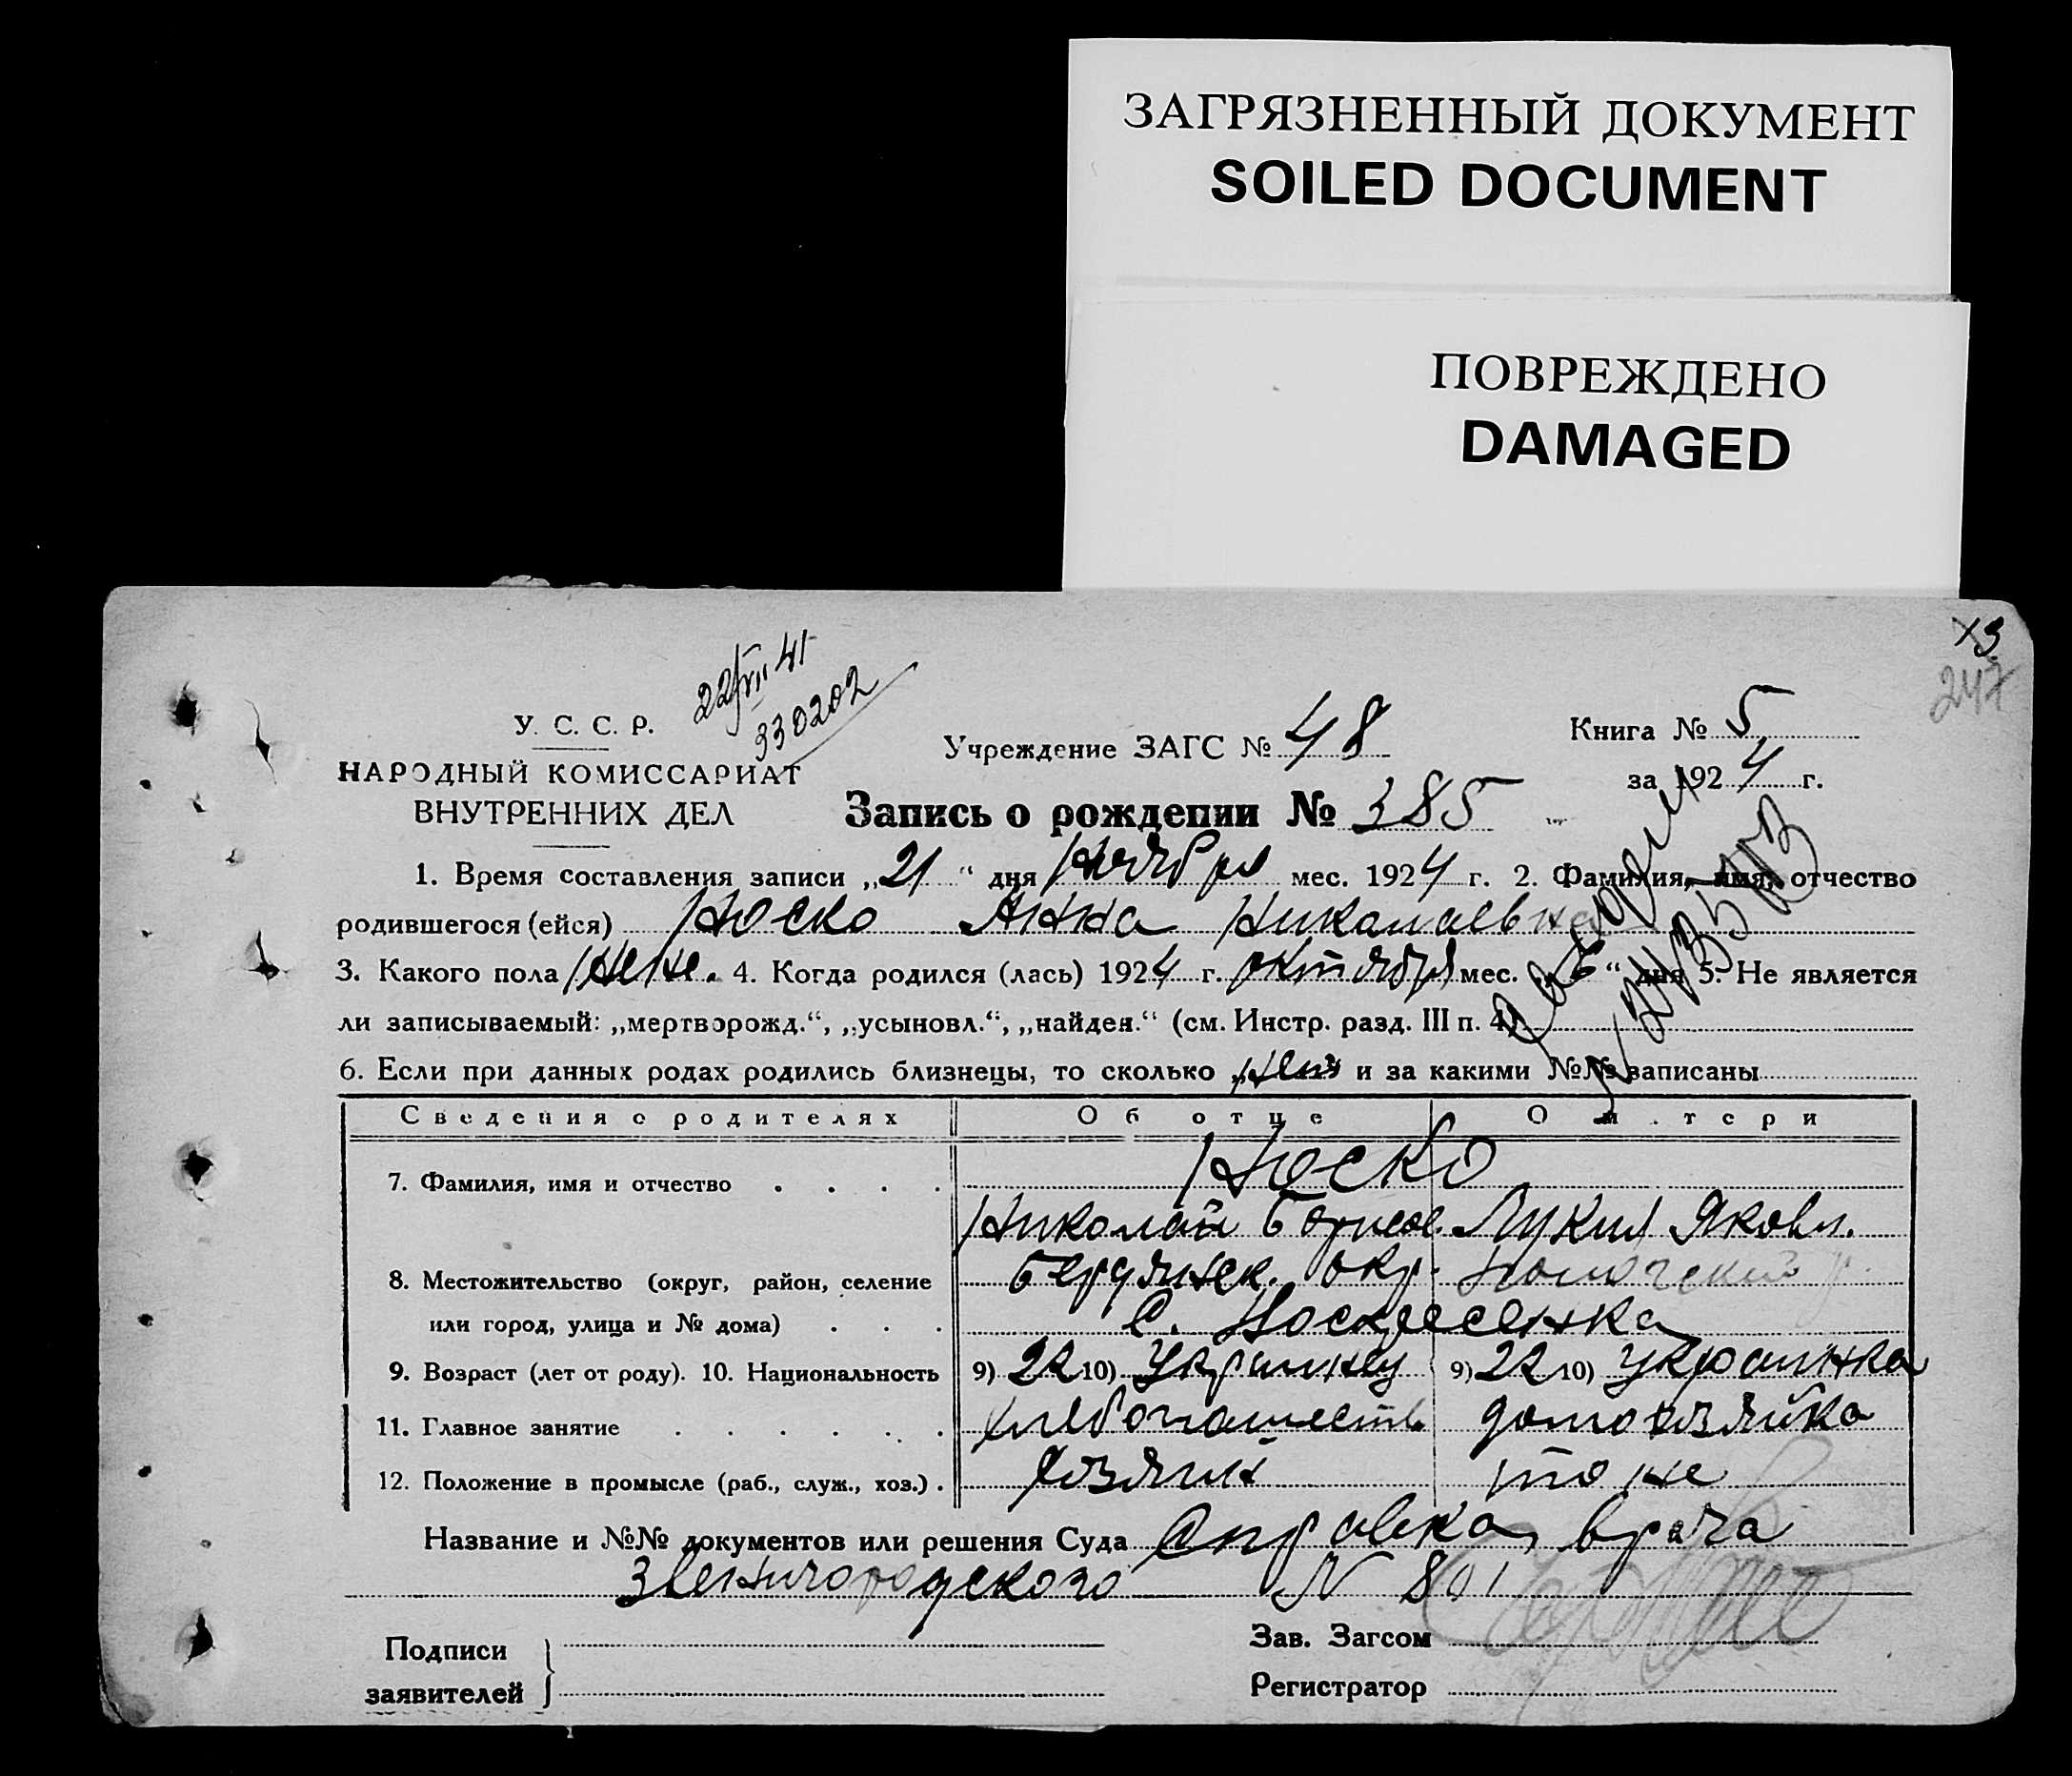 ЗАГРЯЗНЕННЫЙ ДОКУМЕНТ
SOILED DOCUMENT
ПОВРЕЖДЕНО
DAMAGED
х3
247
22/VII 41
330202
У. С. С. Р.
НАРОДНЫЙ КОМИССАРИАТ
ВНУТРЕННИХ ДЕЛ
Учреждение ЗАГС № 48
Книга № 5
за 1924 г.
Запись о рождении № 385
1. Время составления записи „21“ дня Ноября мес. 1924 г. 2. Фамилия, имя, отчество
родившегося (ейся) Носко Анна Николаевна
3. Какого пола жен. 4. Когда родился (лась) 1924 г. октября мес. „6“ дня 5. Не является
ли записываемый: „мертворожд.“, „усыновл.“, „найден.“ (см. Инстр. разд. III п. 4)
6. Если при данных родах родились близнецы, то сколько нет и за какими №№ записаны
Сведения о родителях Об отце О матери
7. Фамилия, имя и отчество Носко
Николай Борисов. Лукия Яковл.
8. Местожительство (округ, район, селение Бердянск. окр. Пологский р.
или город, улица и № дома) с. Воскресенка
9. Возраст (лет от роду). 10. Национальность 9) 22 10) Украинец 9) 22 10) Украинка
11. Главное занятие хлебопашеств домохозяйка
12. Положение в промысле (раб., служ., хоз.) хозяин то же
Название и №№ документов или решения Суда Справка врача
Звенигородского N 801
Подписи
заявителей
Зав. Загсом
Регистратор